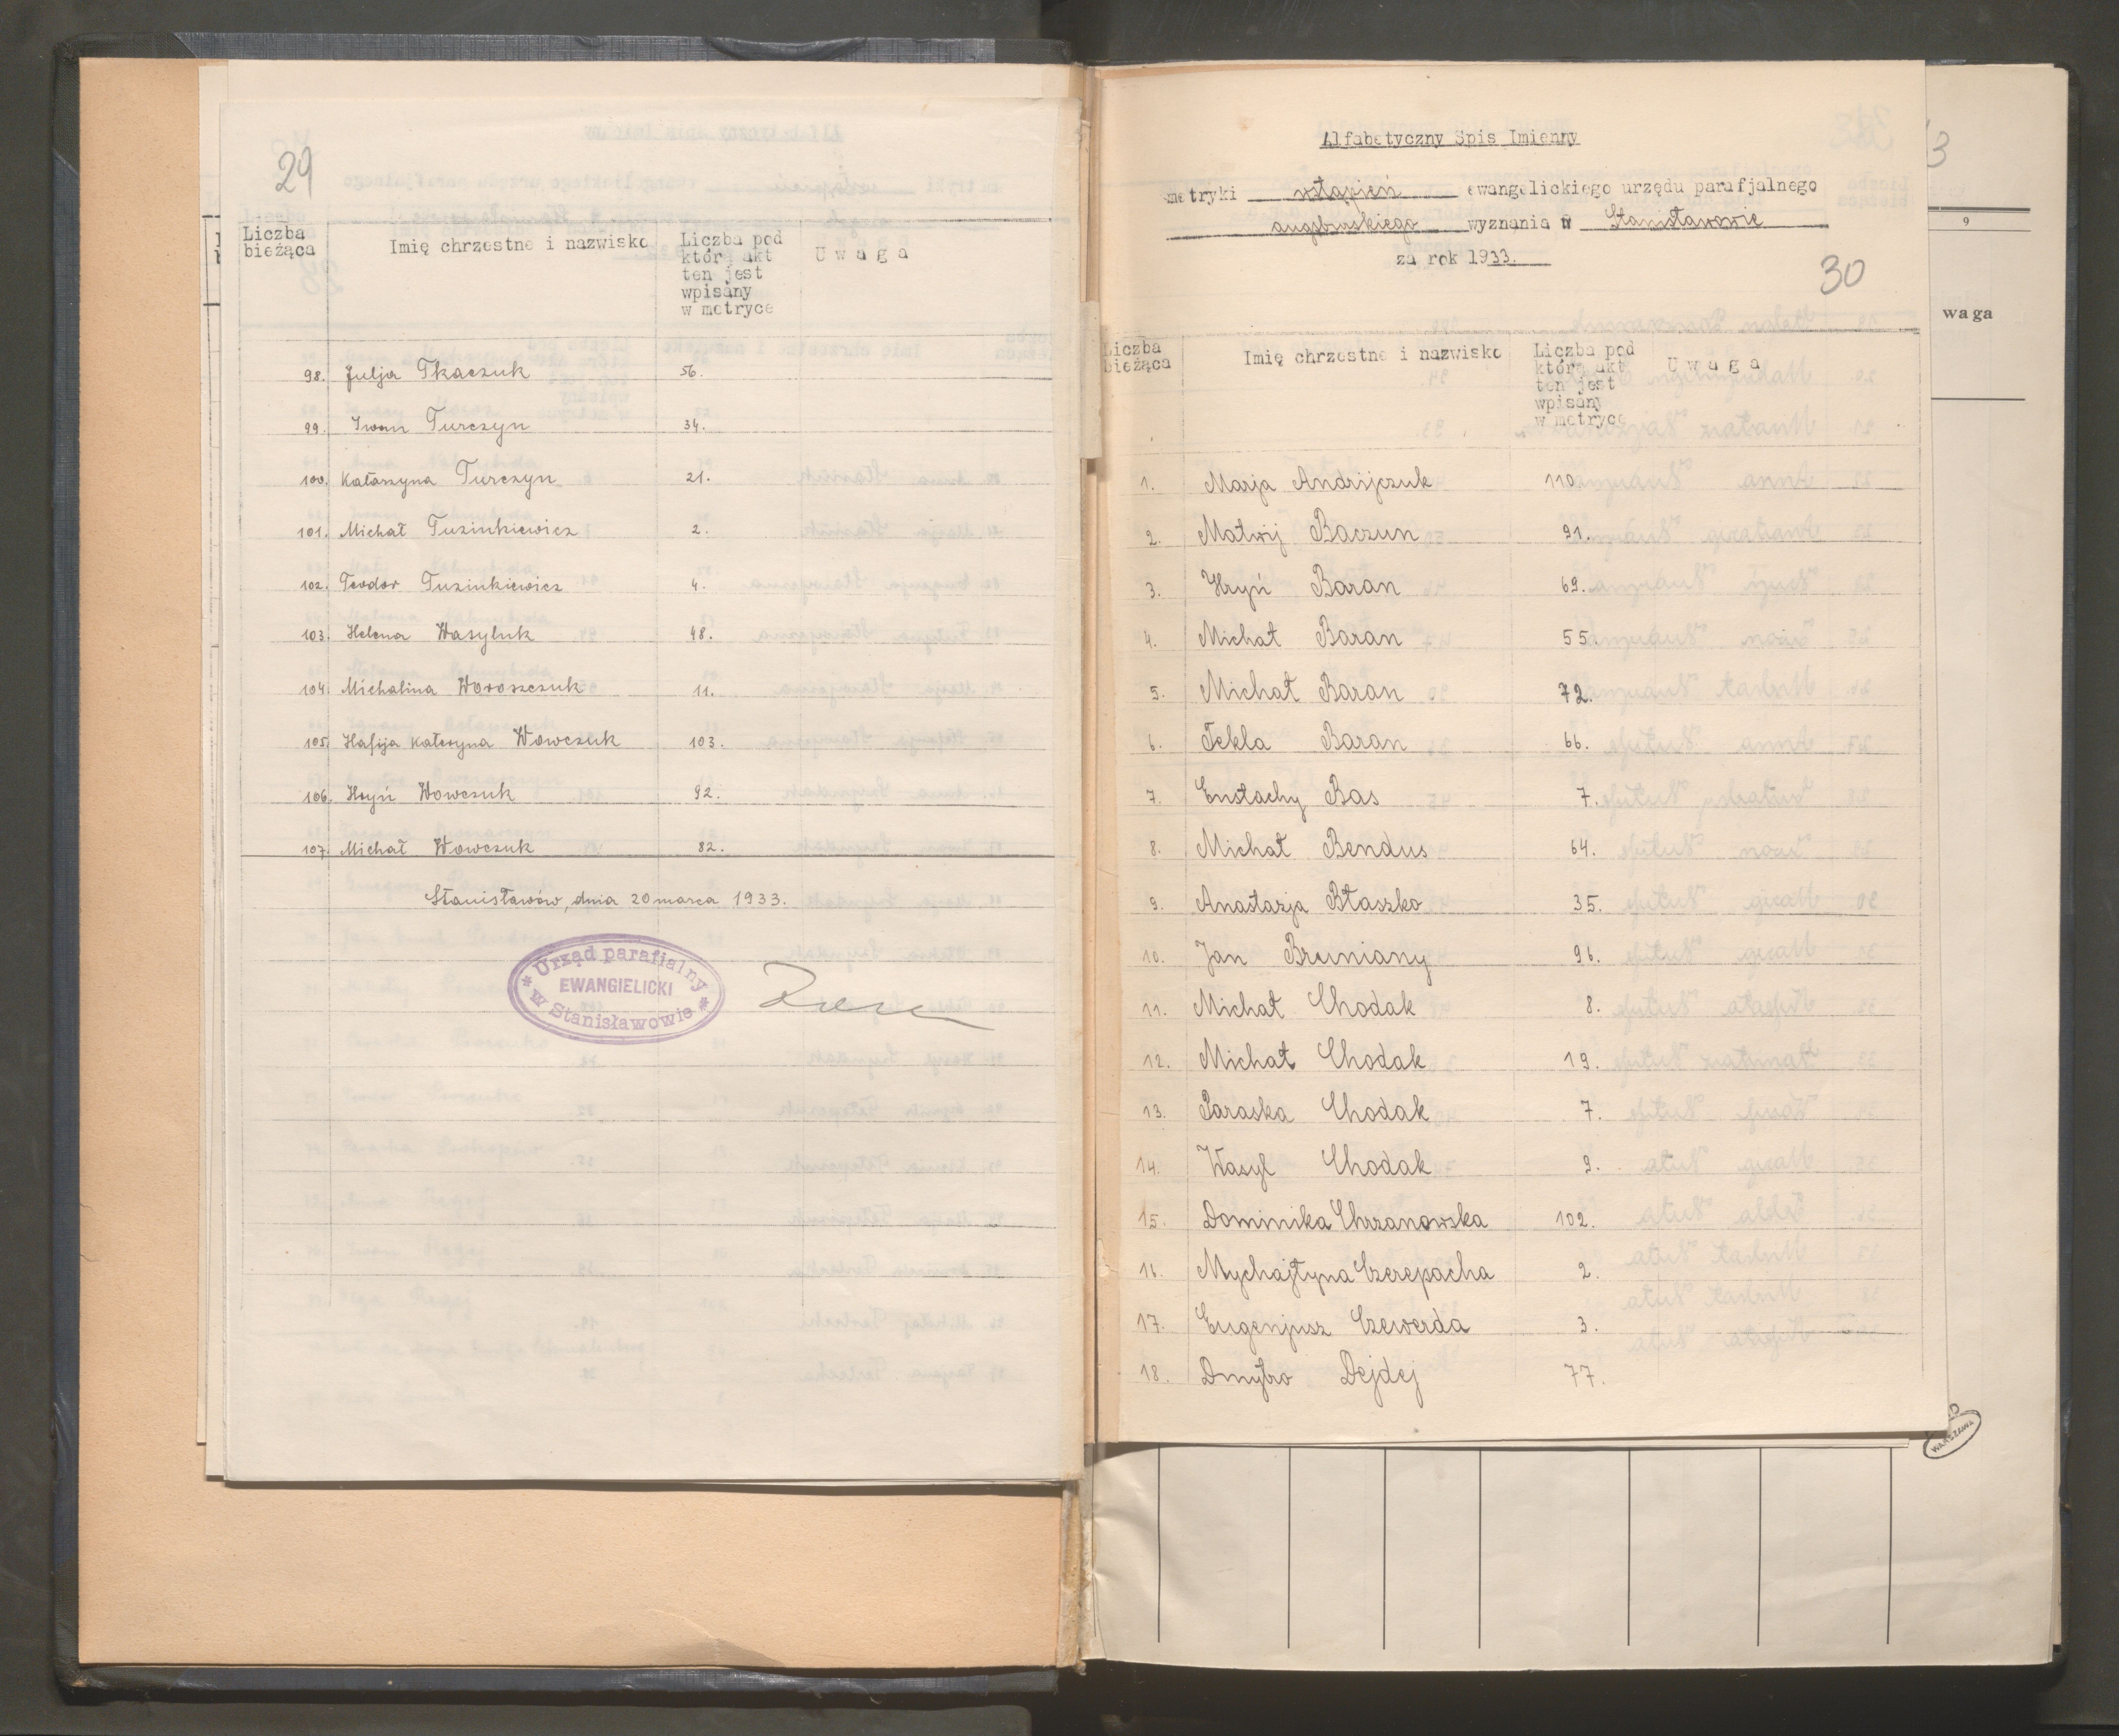 29
Liczba
bieżąca
Imię chrzestne i nazwisko
Liczba pod
którą akt
ten jest
wpisany
w metryce
Uwaga
98. Julja Tkaczuk 56.
99. Iwan Turczyn 34.
100. Katarzyna Turczyn 21.
101. Michał Tuzinkiewicz 2.
102. Teodor Tuzinkiewicz 4.
103. Helena Wasyluk 48.
104. Michalina Woroszczuk 11.
105. Hafija Kateryna Wowczuk 103.
106. Hryń Wowczuk 92.
107. Michał Wowczuk 82.
Stanisławów, dnia 20 marca 1933.
Urząd parafialny
EWANGIELICKI
w Stanisławowie
Alfabetyczny Spis Imienny
metryki wstąpień ewangelickiego urzędu parafjalnego
augsburskiego wyznania w Stanisławowie
za rok 1933.
30
Liczba
bieżąca
Imię chrzestne i nazwisko
Liczba pod
którą akt
ten jest
wpisany
w metryce
Uwaga
1. Marja Andrijczuk 110.
2. Matwij Baczun 91.
3. Hryń Baran 69.
4. Michał Baran 55.
5. Michał Baran 72.
6. Tekla Baran 66.
7. Eustachy Bas 7.
8. Michał Bendus 64.
9. Anastazja Błaszko 35.
10. Jan Bruniany 96.
11. Michał Chodak 8.
12. Michał Chodak 19.
13. Paraska Chodak 7.
14. Wasyl Chodak 9.
15. Dominika Chrzanowska 102.
16. Mychajłyna Czerepacha 2.
17. Eugenjusz Czewerda 3.
18. Dmytro Dejdej 77.
3
9
waga
WARSZAWA